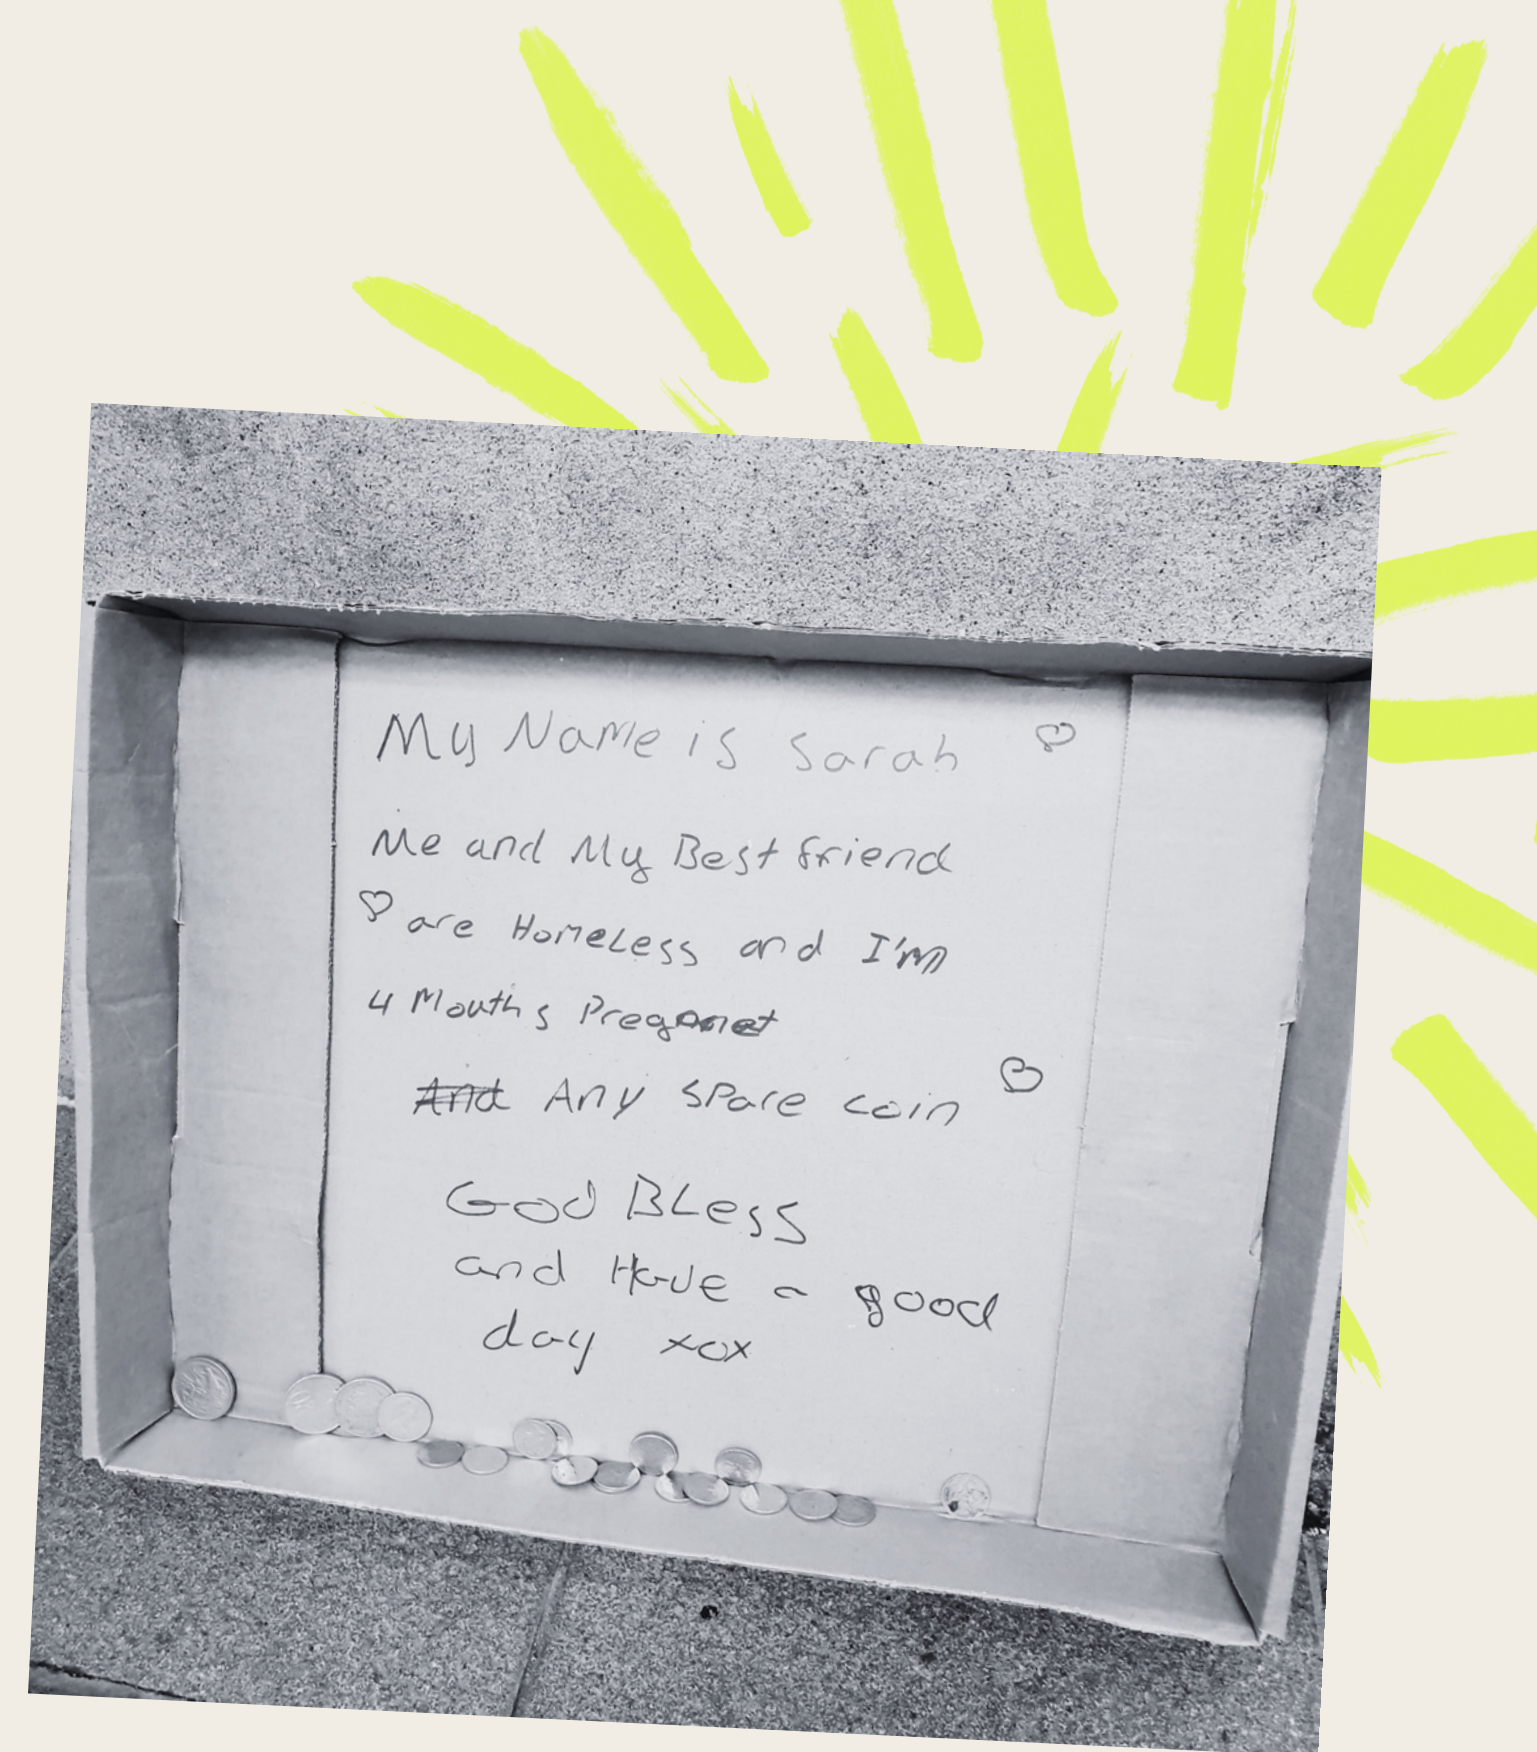 My Name is Sarah
Me and My Best friend
are Homeless and I'm
4 Mouths Pregnant
And Any Spare coin
God Bless
and Have a good
day xox